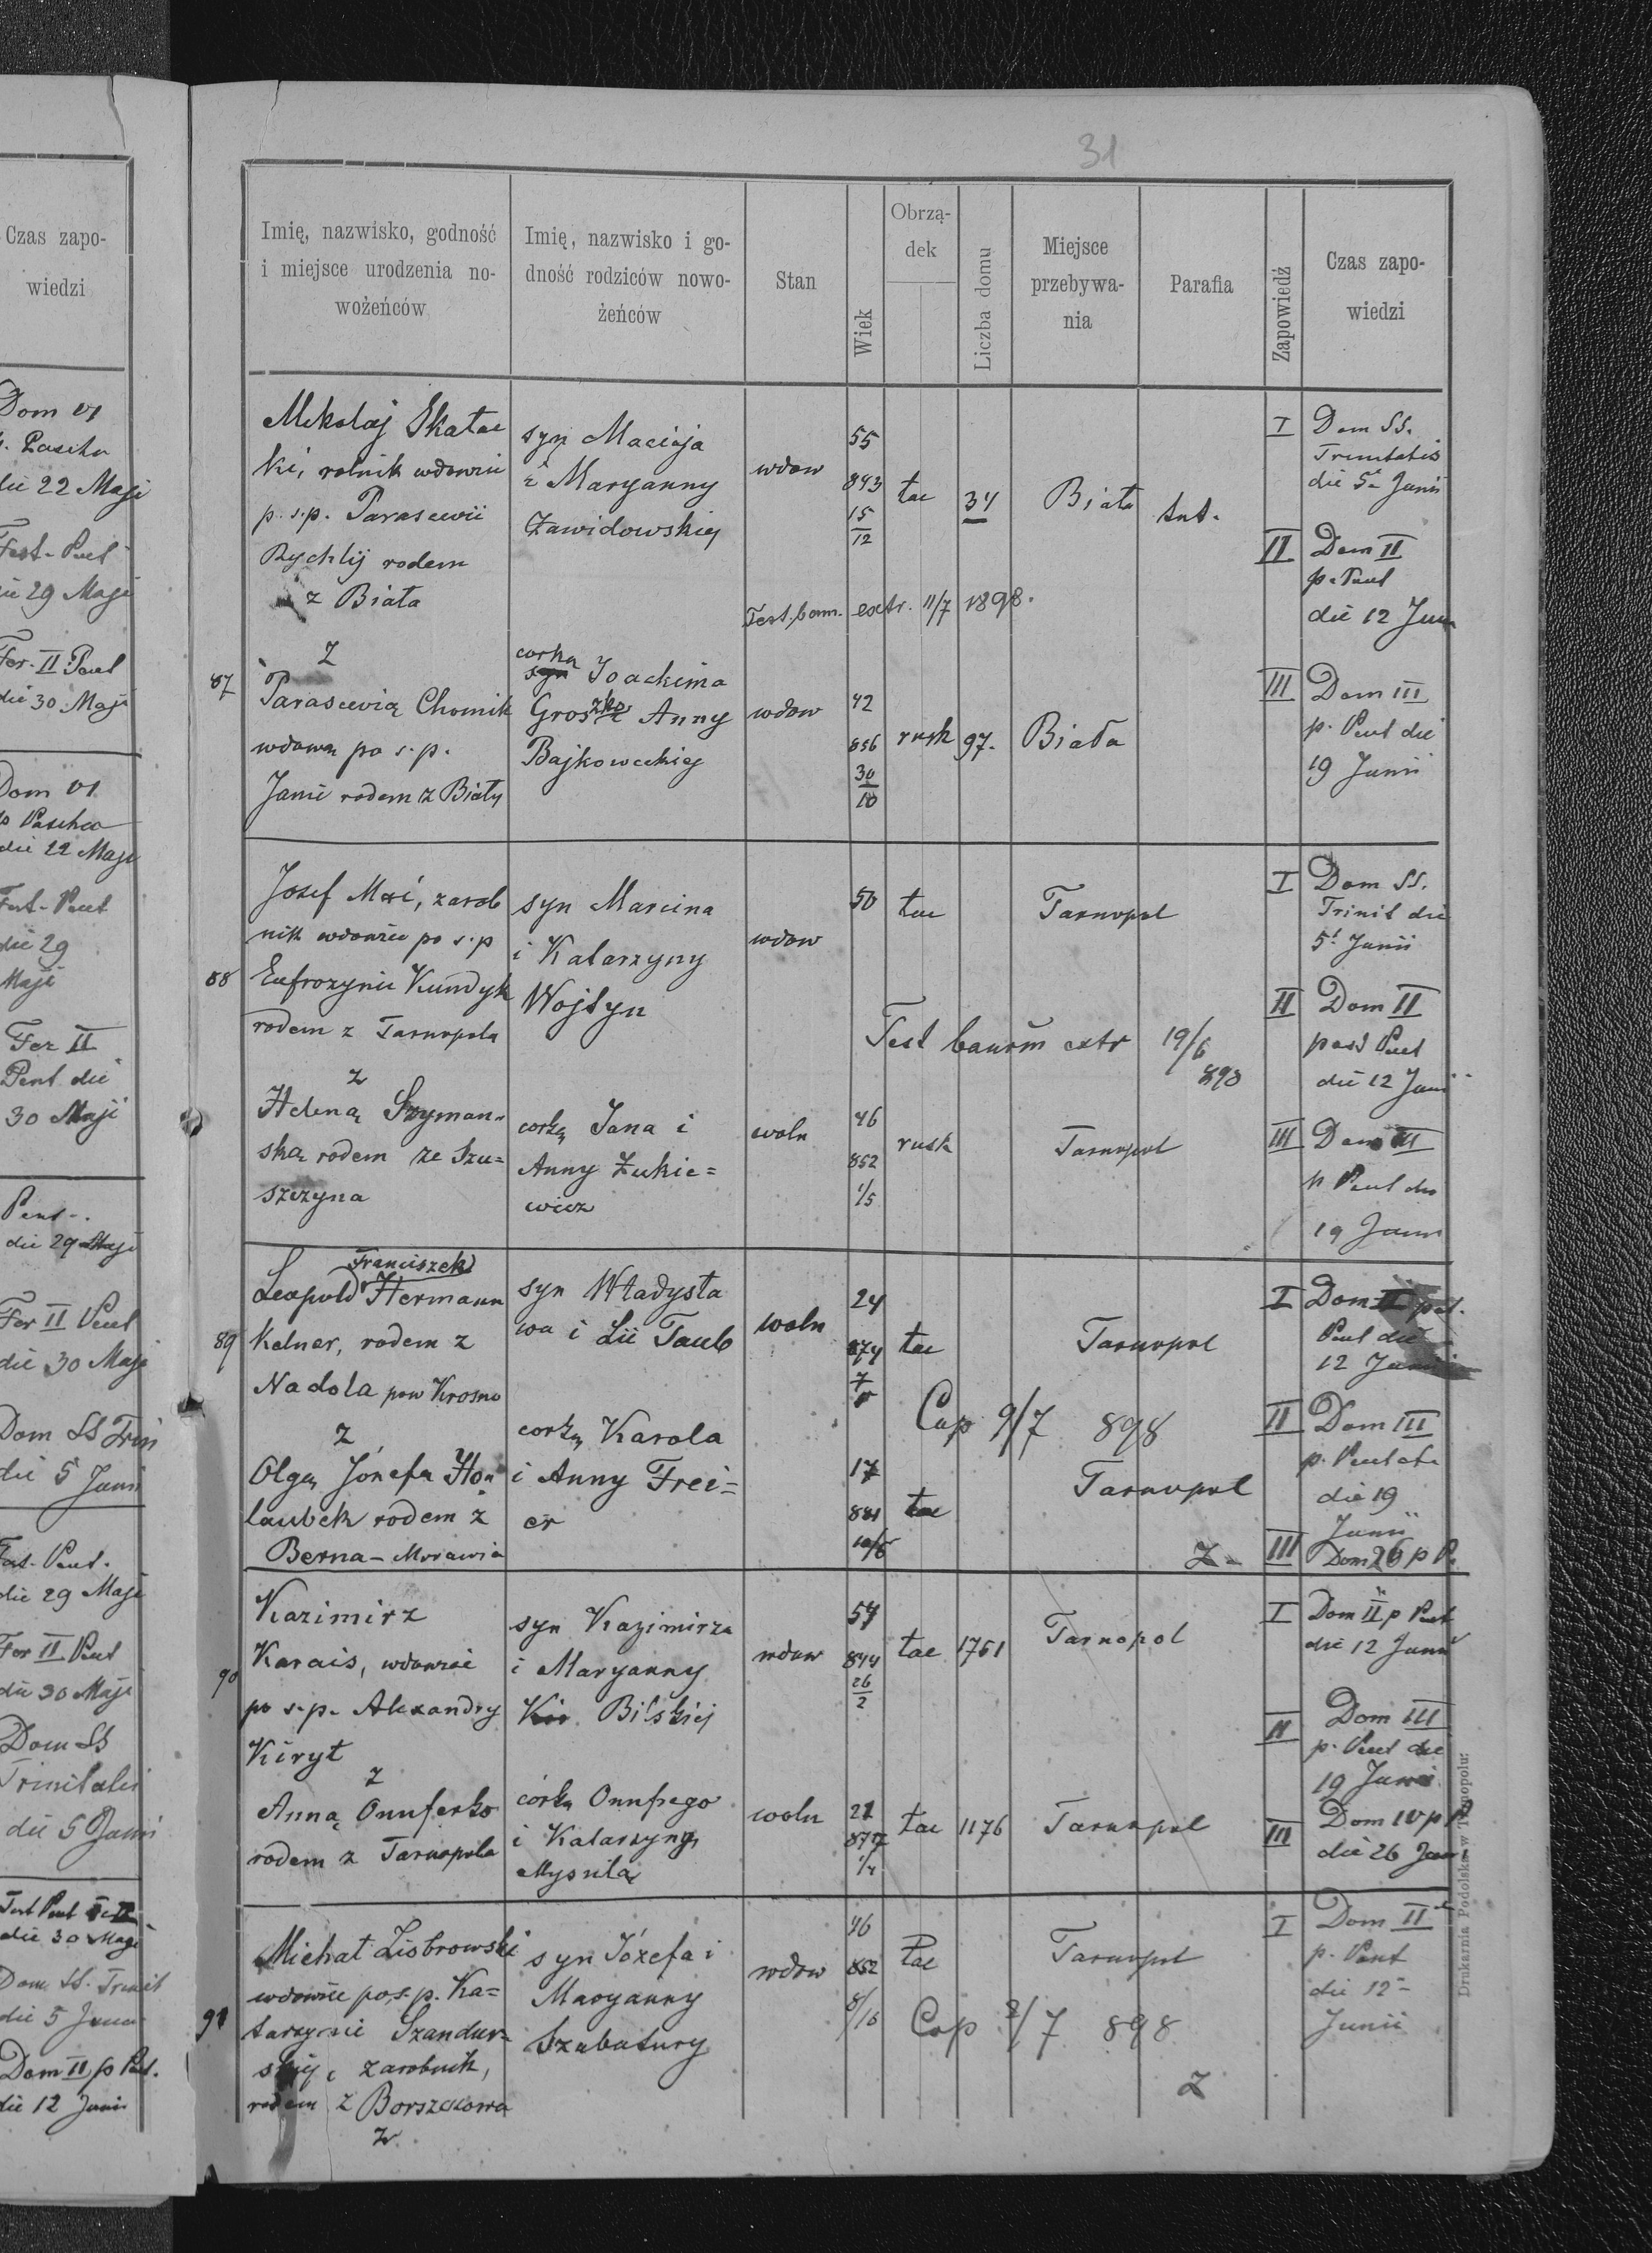 31
Czas zapo-
wiedzi
Dom VI
p. Pascha
die 22 Maji
Fest. Pent
die 29 Maji
Fer. II Pent
die 30 Maji
Dom VI
p Pascha
die 22 Maji
Fest. Pent
die 29
Maji
Fer II
Pent die
30 Maji
Pent.
die 29 Maji
Fer II Pent
die 30 Maji
Dom SS Trin
die 5 Junii
Fest. Pent.
die 29 Maji
Fer II Pent
die 30 Maji
Dom SS
Trinitatis
die 5 Junii
Fest Pent
die 30 Maji
Dom. SS. Trinit
die 5 Junii
Dom II p Pent.
die 12 Junii
Imię, nazwisko, godność
i miejsce urodzenia no-
wożeńców
Imię, nazwisko i go-
dność rodziców nowo-
żeńców
Stan
Wiek
Obrzą-
dek
Liczba domu
Miejsce
przebywa-
nia
Parafia
Zapowiedź
Czas zapo-
wiedzi
87
Mikołaj Skałac
ki, rolnik wdowiec
p. s.p. Parascewii
Rychlij rodem
z Biała
syn Macieja
i Maryanny
Zawidowskiej
wdow
55
843
15
12
łac
34
Biała
tut.
Test. bann. extr. 11/7 1898.
z
Parascewią Chomik
wdową po s.p.
Janie rodem z Biały
corką
syn Joachima
Groszko i Anny
Bajkoweckiej
wdow
42
856
30
10
rusk
97.
Biała
I
Dom SS.
Trinitatis
die 5 Junii
II
Dom II
p. Pent
die 12 Junii
III
Dom III
p. Pent die
19 Junii
88
Josef Maś, zarob
nik wdowiec po s.p
Eufrozynie Kundyk
rodem z Tarnopola
syn Marcina
i Katarzyny
Wojtyn
wdow
50
łac
Tarnopol
Test bannm extr 19/6
898
z
Heleną Szyman-
ską rodem ze Szu-
szczyna
corką Jana i
Anny Łukie=
wicz
woln
46
852
1/5
rusk
Tarnopol
I
Dom SS.
Trinit die
5 Junii
II
Dom II
post Pent
die 12 Junii
III
Dom III
p Pent die
19 Junii
89
Franciszek
Leopold Hermann
kelner, rodem z
Nadola pow Krosno
syn Władysła
wa i Lii Taub
woln
24
874
7
łac
Tarnopol
Cop 9/7 898
z
Olgą Józefa Ho-
laubek rodem z
Berna - Morawia
corką Karola
i Anny Frei=
er
17
881
10/5
łac
Tarnopol
Z-
I
Dom II post.
Pent die
12 Junii
II
Dom III
p. Pent
die 19
Junii
III
Dom 26 p P.
90
Kazimirz
Karais, wdowiec
po s.p. Alexandry
Kiryt
syn Kazimirza
i Maryanny
Bilskiej
wdow
54
844
26
2
łac
1751
Tarnopol
z
Anną Onuferko
rodem z Tarnopola
córką Onufrego
i Katarzyny
Mysula
woln
21
877
łac
1176
Tarnopol
I
Dom II p Pent
die 12 Junii
II
Dom III
p. Pent die
19 Junii
III
Dom IV p P
die 26 Junii
91
Michał Zistrowski
wdowiec po s.p. Ka=
tarzynie Szandur=
skiej, zarobnik,
rodem z Borszczowa
z
syn Józefa i
Maryanny
Szabatury
wdow
46
852
8/10
łac
Tarnopol
Cop 2/7 898
Z
I
Dom II
p. Pent
die 12
Junii
Drukarnia Podolska w Tarnopolu.